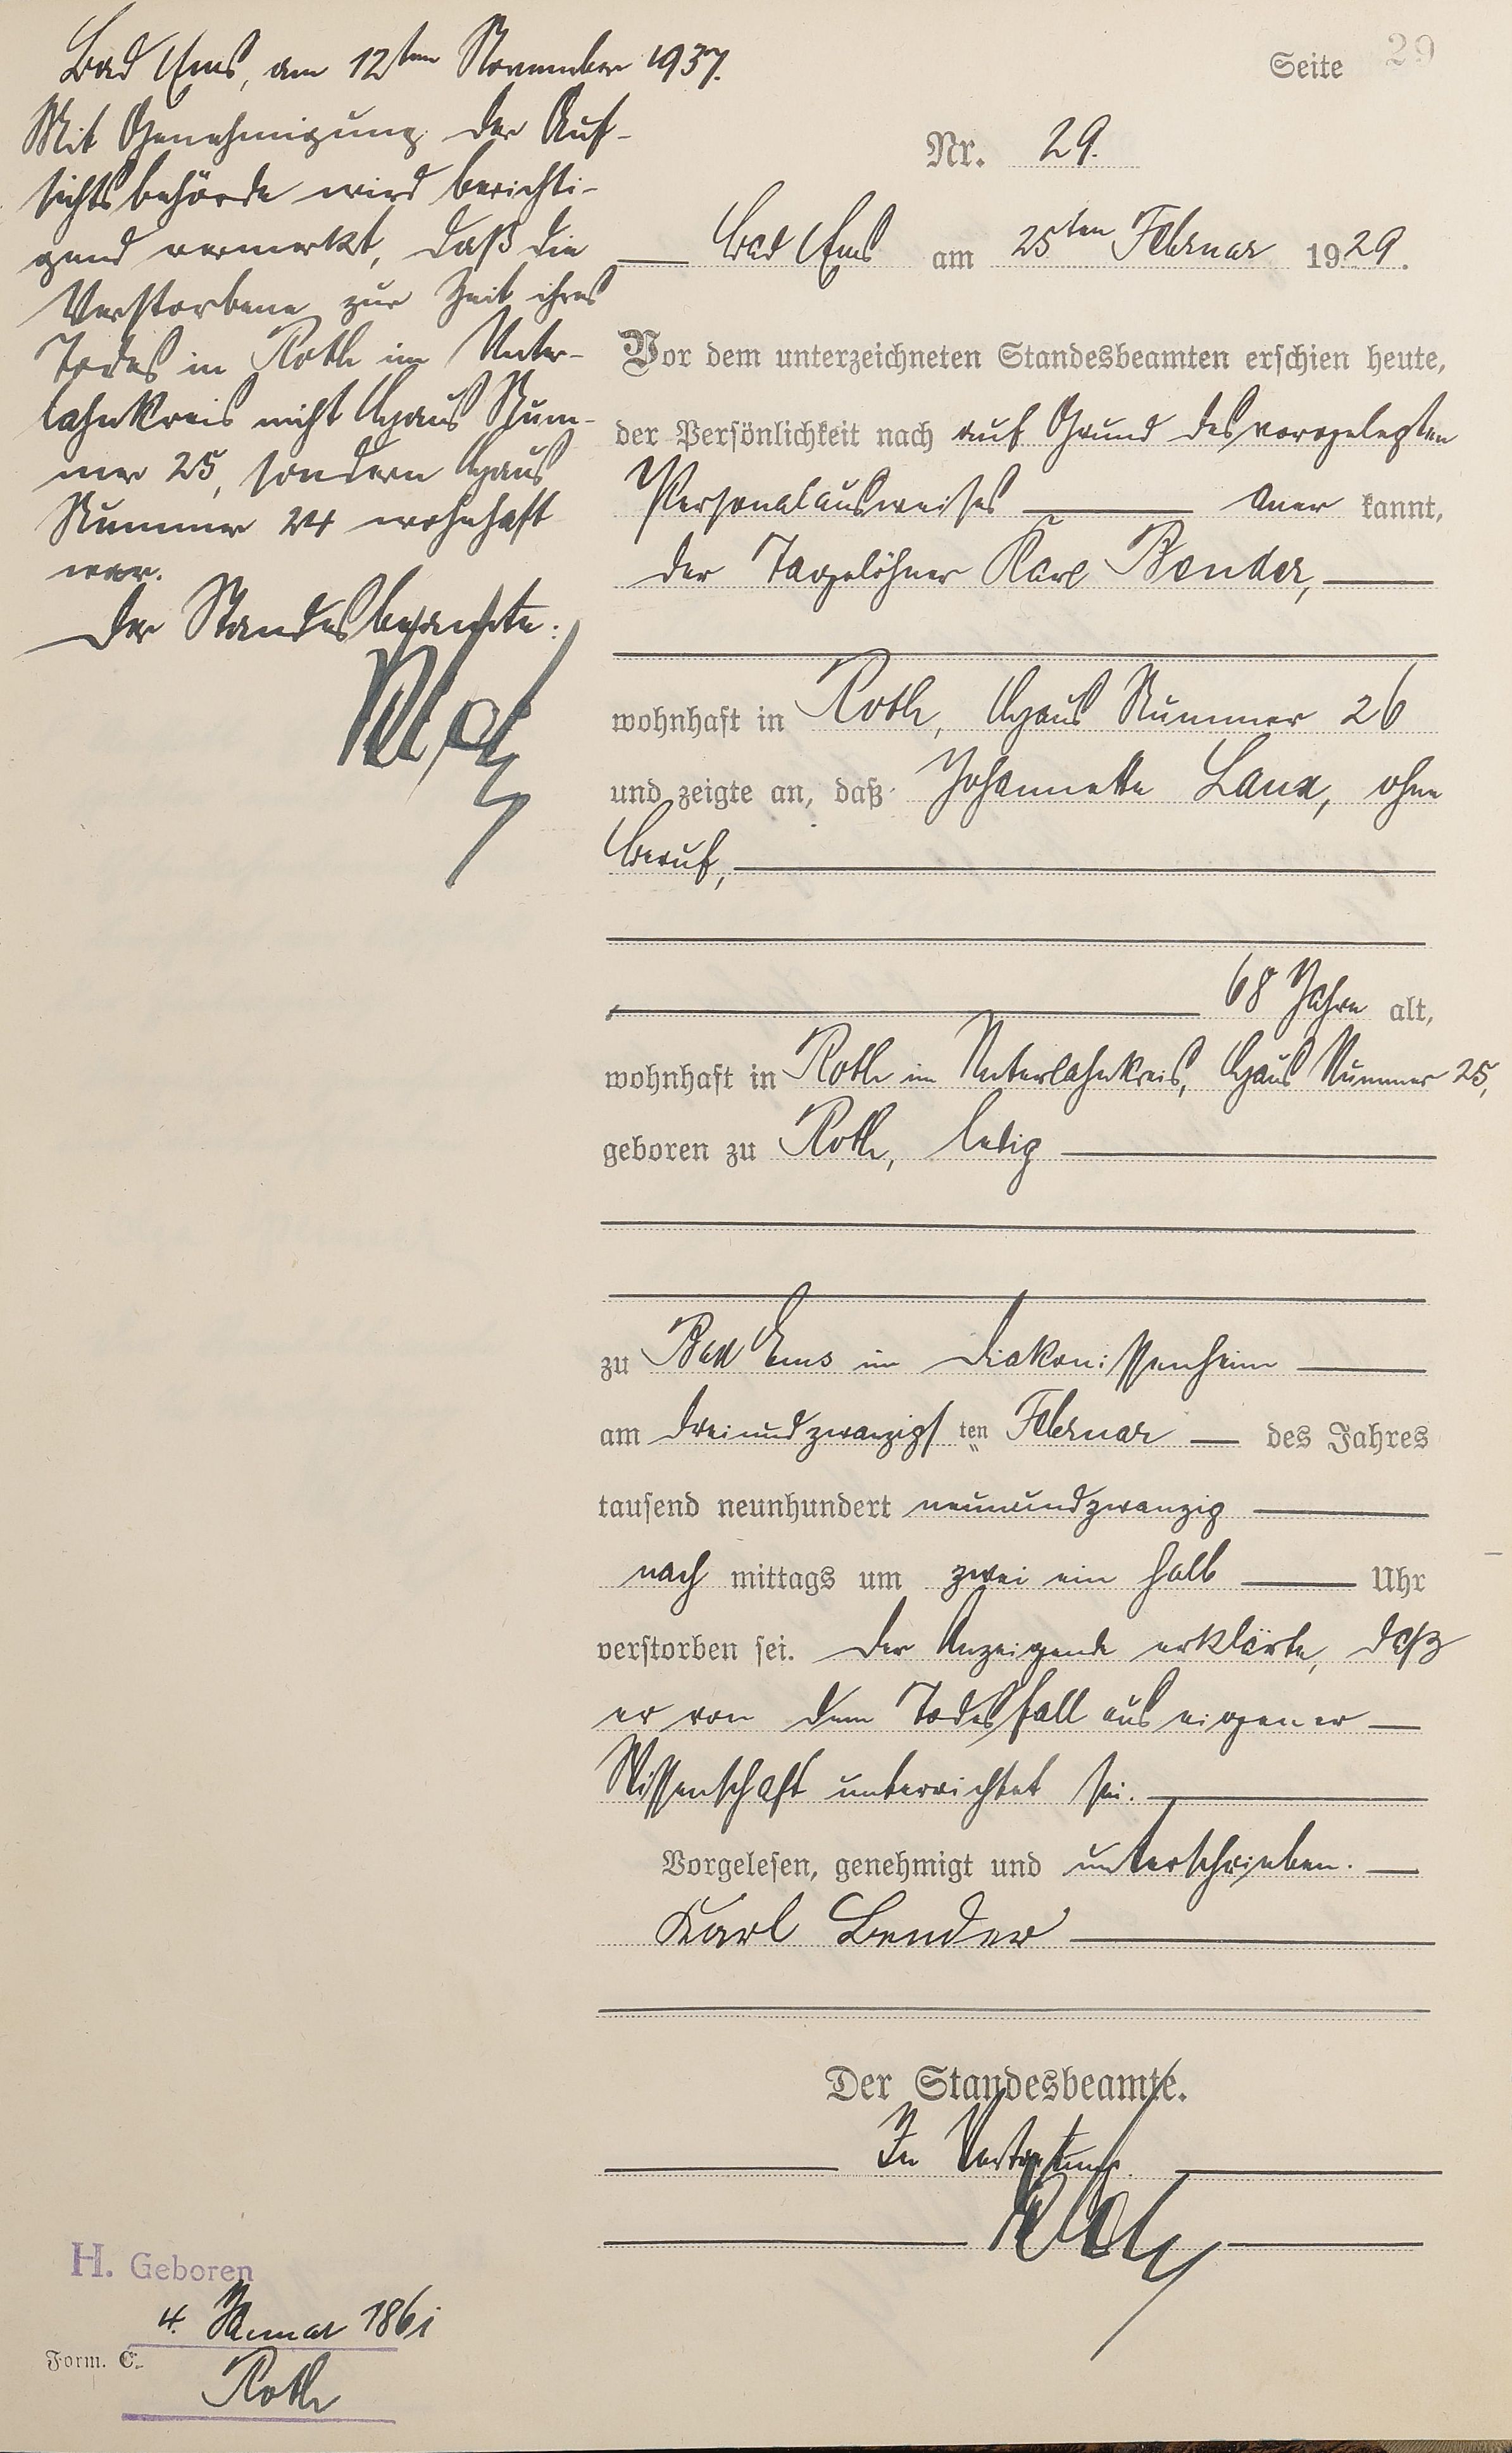 Seite 29
Nr. 29.
Bad Ems am 25ten Februar 1929.
Vor dem unterzeichneten Standesbeamten erschien heute,
der Persönlichkeit nach auf Grund des vorgelegten
Personalausweises aner kannt,
der Tagelöhner Karl Bender,
wohnhaft in Roth, Haus Nummer 26
und zeigte an, daß Johannette Laux, ohne
Beruf,
68 Jahre alt,
wohnhaft in Roth im Unterlahnkreis, Haus Nummer 25,
geboren zu Roth, ledig
zu Bad Ems im Diakonissenheim
am dreiundzwanzigs ten Februar des Jahres
tausend neunhundert neunundzwanzig
nach mittags um zwei ein halb Uhr
verstorben sei. Der Anzeigende erklärte, daß
er von dem Todesfall aus eigener
Wissenschaft unterrichtet sei.
Vorgelesen, genehmigt und unterschrieben.
Karl Bender
Der Standesbeamte.
In Vertretung.
Bad Ems, am 12ten November 1937.
Mit Genehmigung der Auf-
sichtsbehörde wird berichti-
gend vermerkt, daß die
Verstorbene zur Zeit ihres
Todes in Roth im Unter-
lahnkreis nicht Haus Num-
mer 25, sondern Haus
Nummer 24 wohnhaft
war.
Der Standesbeamte:
H. Geboren
4. Januar 1861
Roth
Form. C.